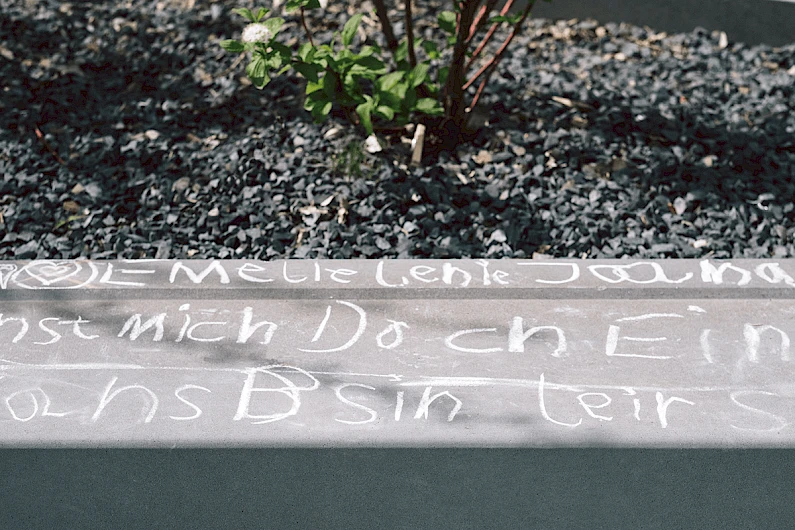 Melie lenie Joana
nst mich Doch Ein
ochs Bsin leir S